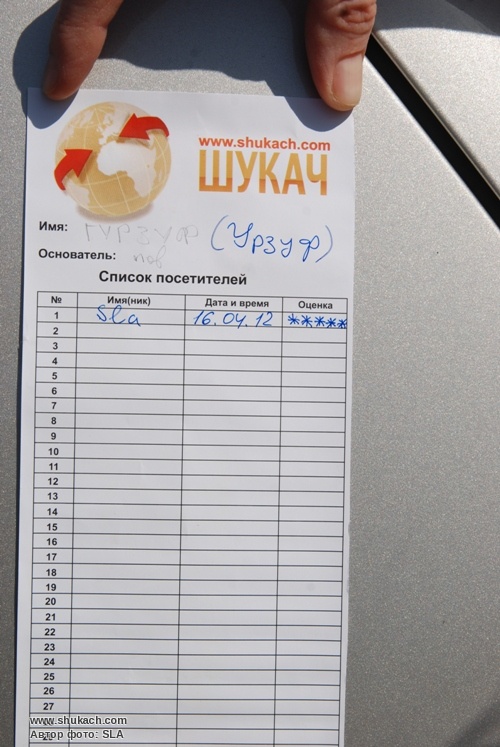 www.shukach.com
ШУКАЧ
Имя: гурзуф (Урзуф)
Основатель:
Список посетителей
№ Имя(ник) Дата и время Оценка
1 Sla 16.04.12 *****
2
3
4
5
6
7
8
9
10
11
12
13
14
15
16
17
18
19
20
21
22
23
24
25
26
27
www.shukach.com
Автор фото: SLA